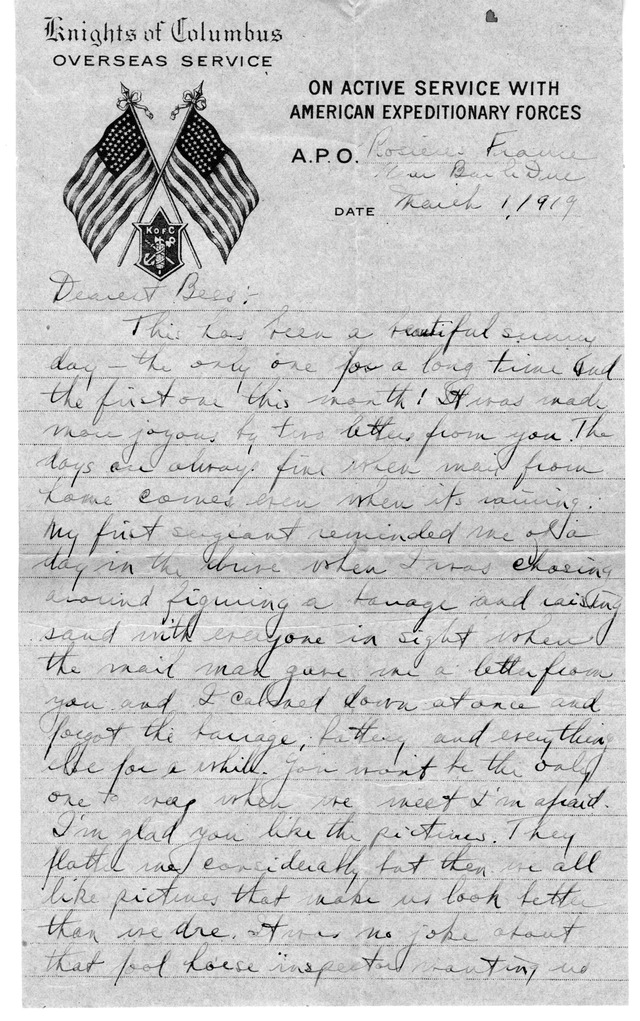 Knights of Columbus
OVERSEAS SERVICE
ON ACTIVE SERVICE WITH
AMERICAN EXPEDITIONARY FORCES
A.P.O. France
near Bar le Duc
DATE March 1, 1919
K of C
Dearest Bess:
This has been a beautiful sunny
day – the only one for a long time and
the first one this month! It was made
more joyous by two letters from you. The
days are always fine when mail from
home comes even when its raining.
My first sergeant reminded me of a
day in the drive when I was chasing
around figuring a barrage and raising
sand with everyone in sight when
the mail man gave me a letter from
you and I calmed down at once and
forgot the barrage, battery and everything
else for a while. You won't be the only
one to weep when we meet I'm afraid.
I'm glad you like the pictures. They
flatter me considerably but then we all
like pictures that make us look better
than we are. It was no joke about
that fool horse inspector wanting us